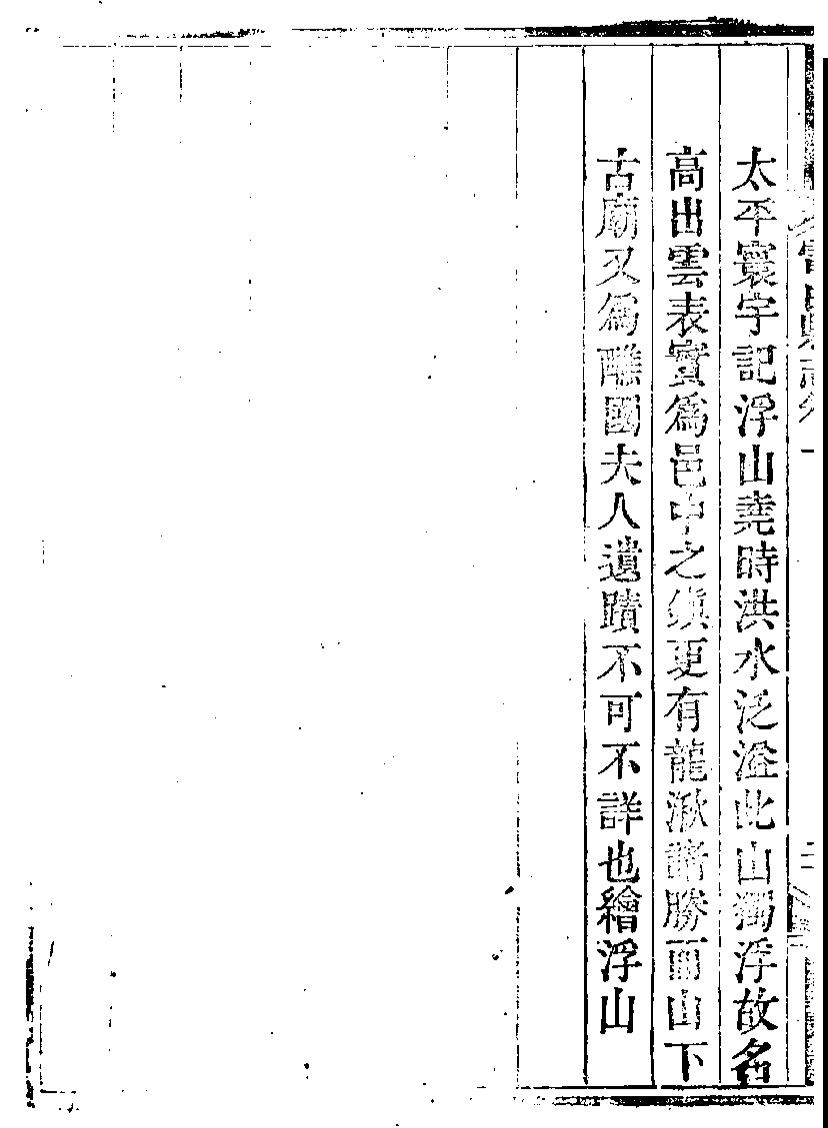 太平寰宇記浮山堯時洪水泛溢此山獨浮故名
高出雲表實為邑中之鎮更有龍湫諸勝而山下
古廟又為譙國夫人遺蹟不可不詳也繪浮山
縣志卷一